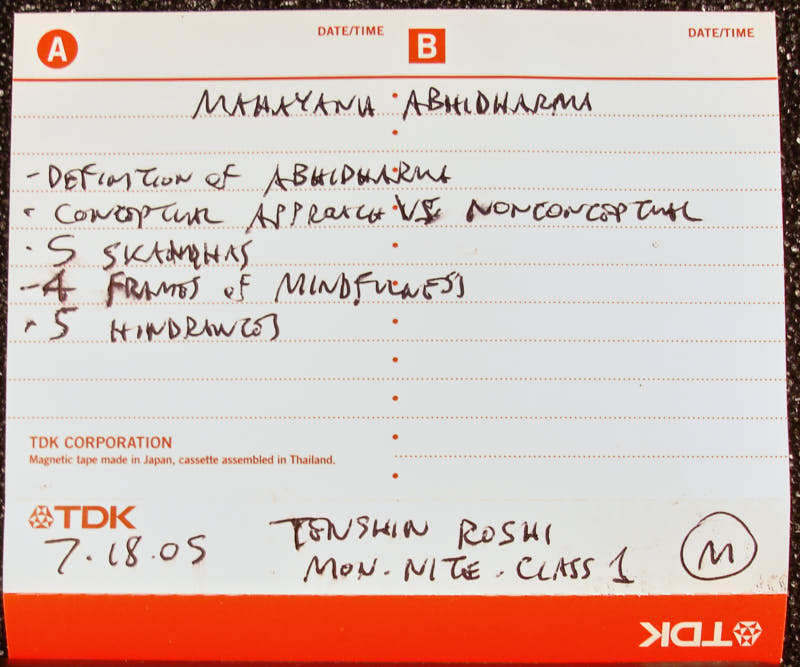 A DATE/TIME B DATE/TIME
MAHAYANA ABHIDHARMA
- DEFINITION OF ABHIDHARMA
- CONCEPTUAL APPROACH VS NONCONCEPTUAL
- 5 SKANDHAS
- 4 FRAMES OF MINDFULNESS
- 5 HINDRANCES
TDK CORPORATION
Magnetic tape made in Japan, cassette assembled in Thailand.
TDK
7.18.05 TENSHIN ROSHI
MON. NITE. CLASS 1 M
TDK